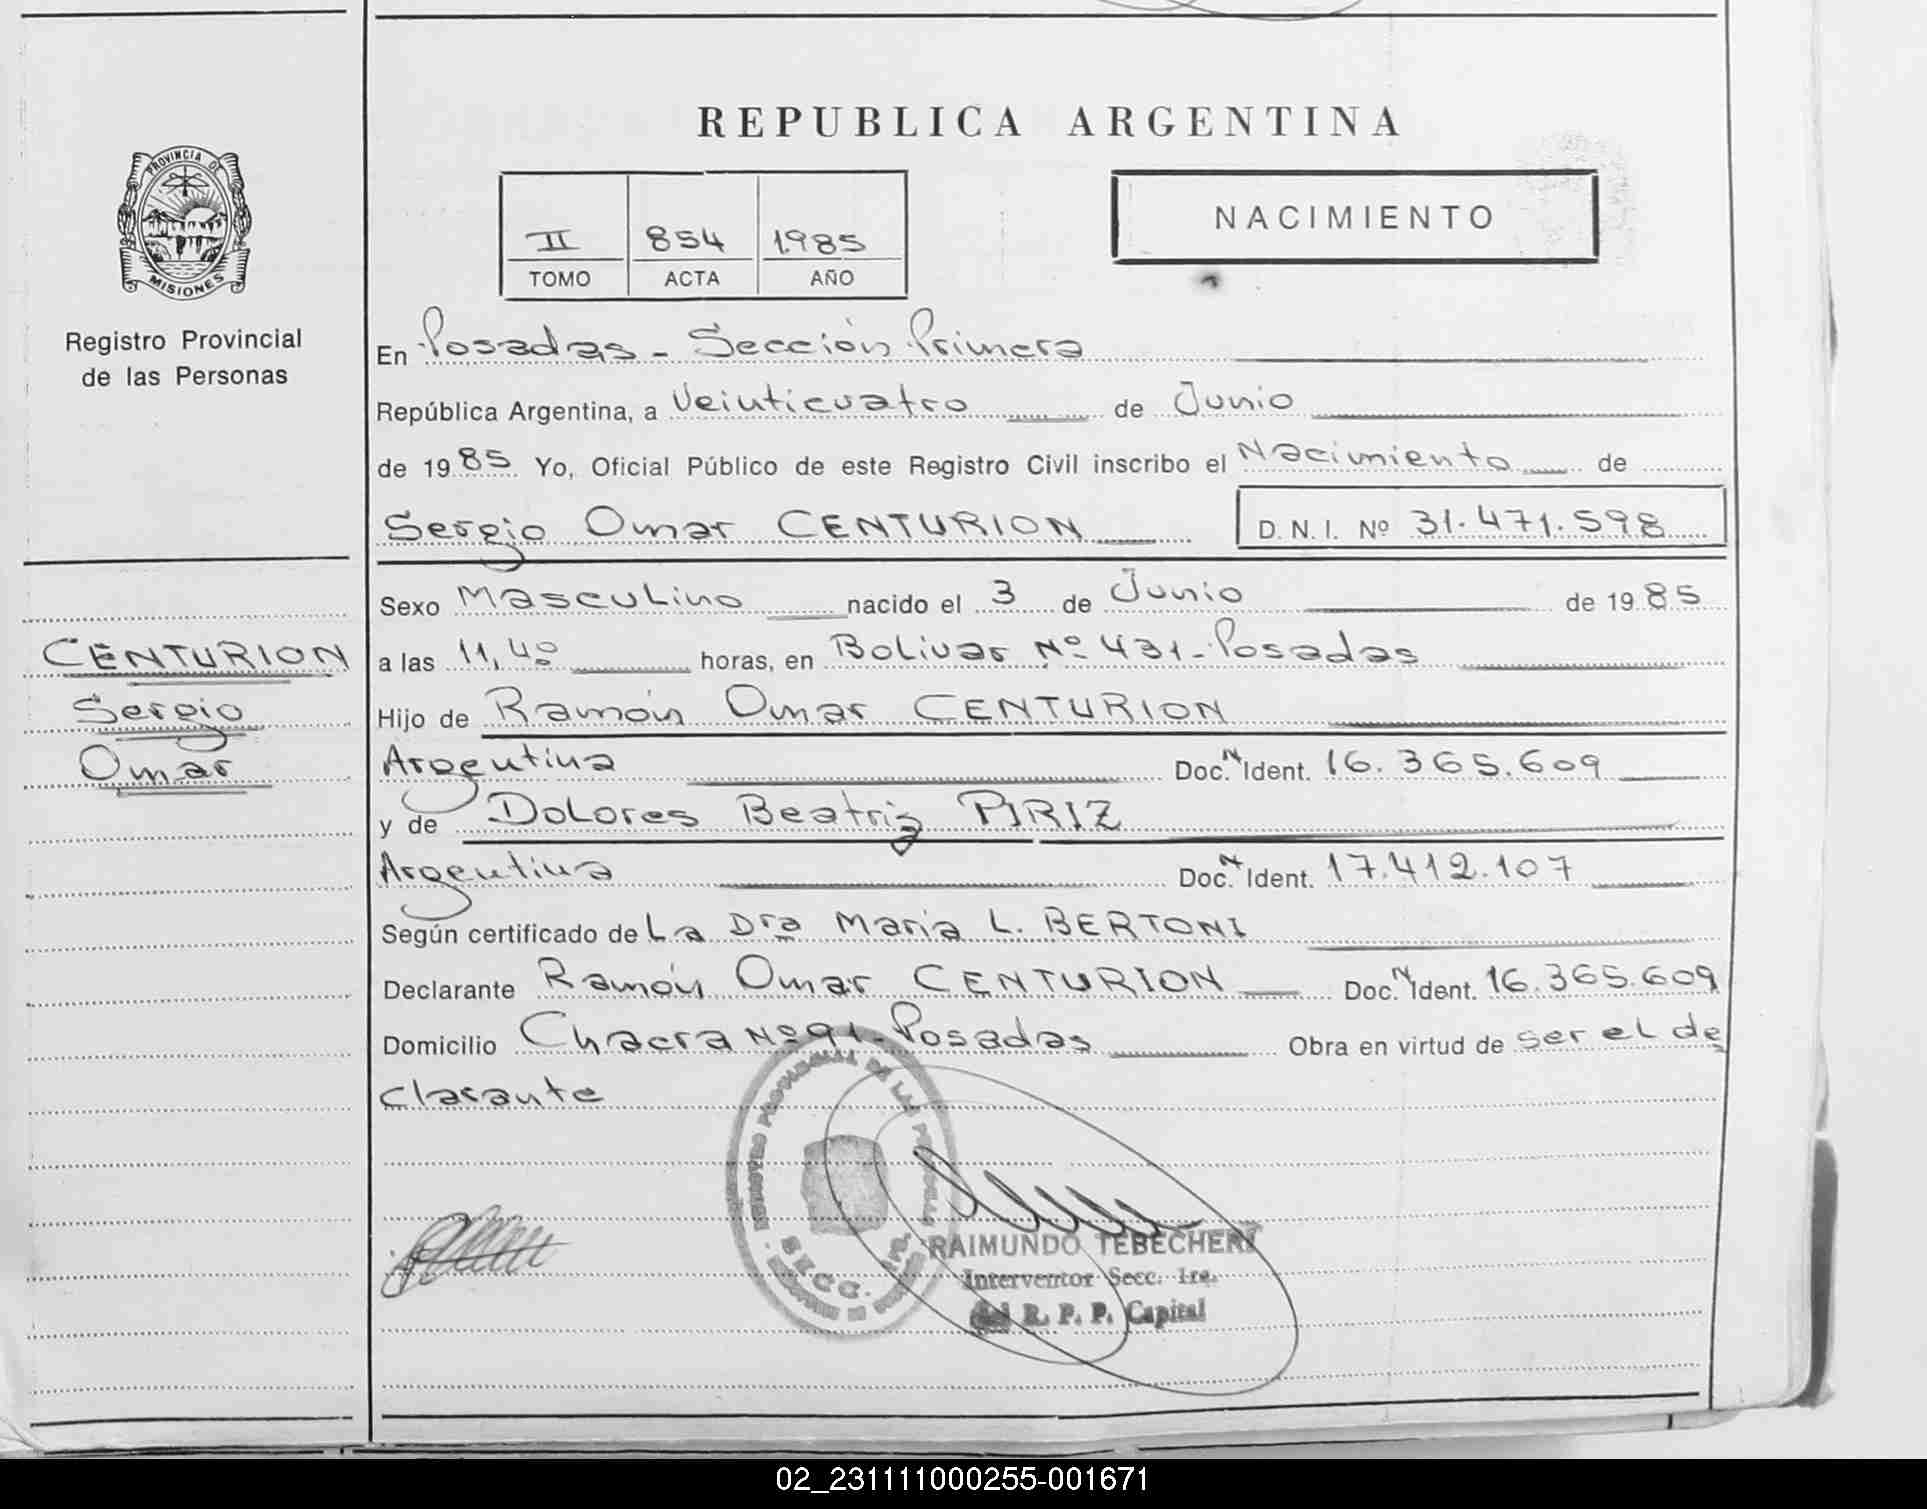 REPUBLICA ARGENTINA
PROVINCIA DE
MISIONES
Registro Provincial
de las Personas
II 854 1985
TOMO ACTA AÑO
NACIMIENTO
En Posadas - Sección Primera
República Argentina, a Veinticuatro de Junio
de 1985 Yo, Oficial Público de este Registro Civil inscribo el Nacimiento de
Sergio Omar CENTURION D.N.I. Nº 31.471.598
Sexo Masculino nacido el 3 de Junio de 1985
CENTURION
Sergio
Omar
a las 11,40 horas, en Bolivar Nº 431 - Posadas
Hijo de Ramón Omar CENTURION
Argentina Doc. N Ident. 16.365.609
y de Dolores Beatriz PIRIZ
Argentina Doc. N Ident. 17.412.107
Según certificado de La Dra Maria L. BERTONI
Declarante Ramón Omar CENTURION Doc. N Ident. 16.365.609
Domicilio Chacra Nº 91 - Posadas Obra en virtud de ser el de
clarante
REGISTRO PROVINCIAL DE LAS PERSONAS
SECC.
RAIMUNDO TEBECHERI
Interventor Secc. 1ra.
del R. P. P. Capital
02_231111000255-001671